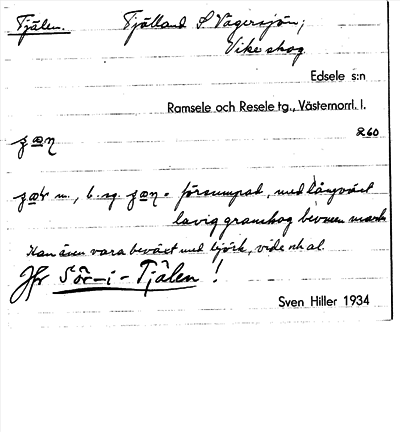 Tjälen. Tjälland S Vägersjön;
Vike skog
Edsele s:n
Ramsele och Resele tg., Västernorrl. l.
R60
m., b. sg. försumpad, med långväxt
lavig granskog bevuxen mark
Kan även vara beväxt med björk, vide och al.
Jfr Sör-i-Tjälen!
Sven Hiller 1934